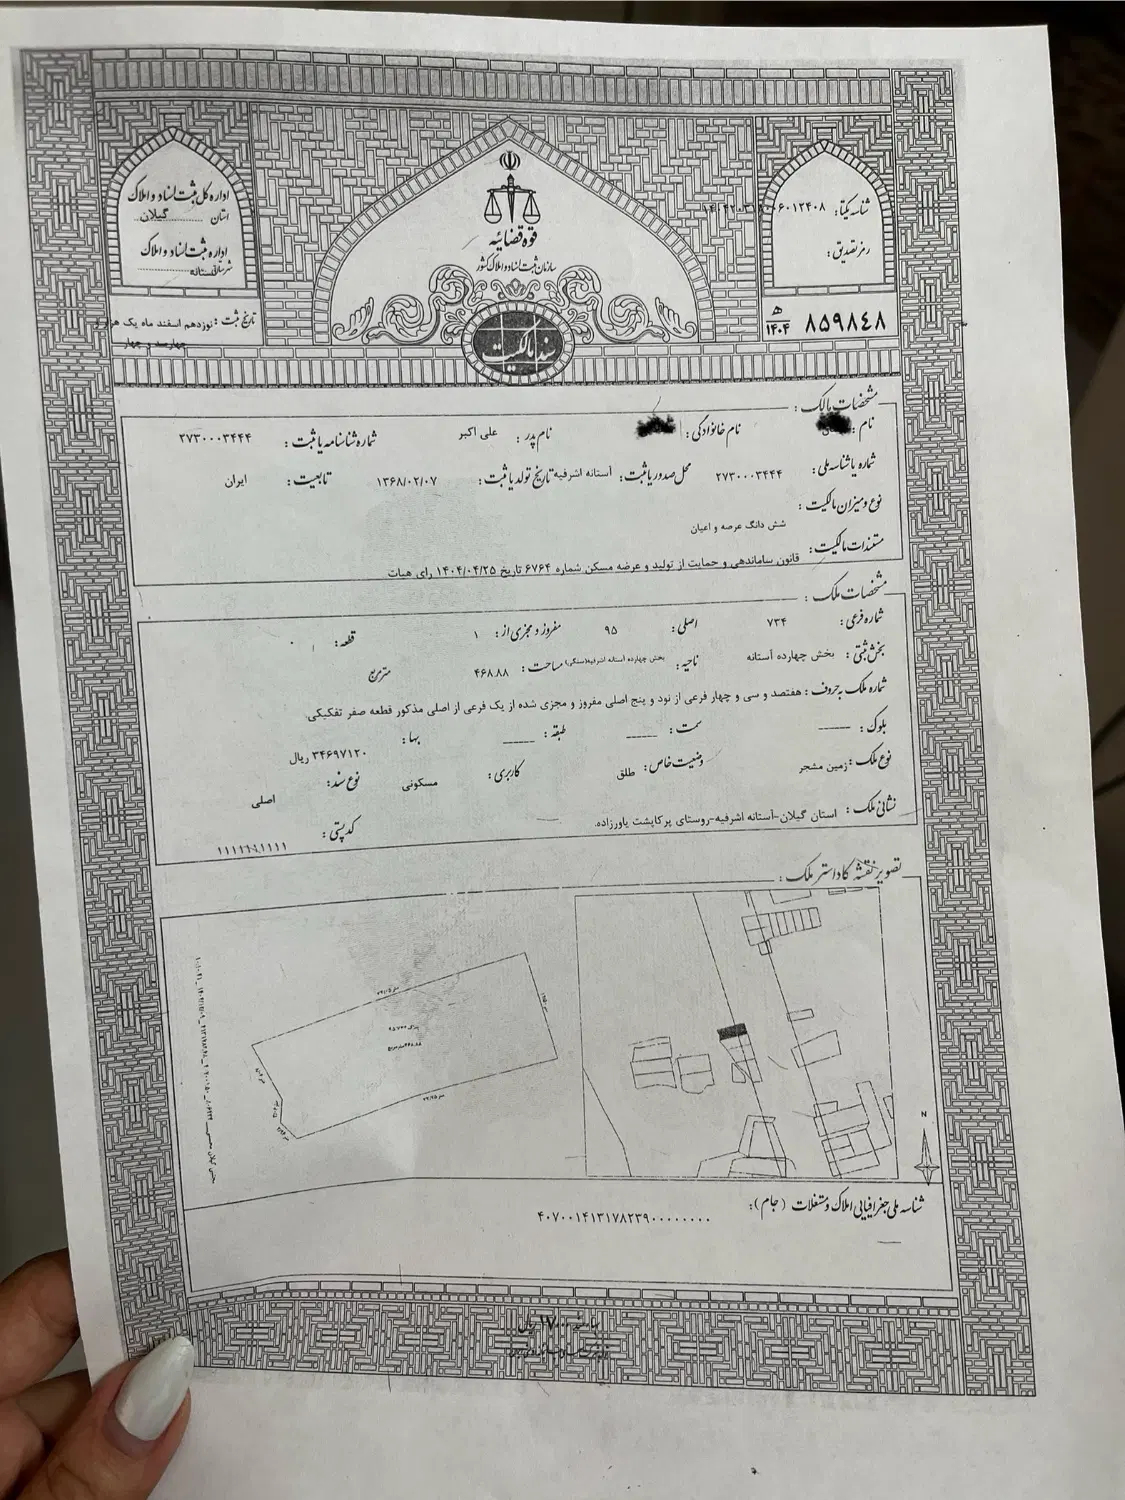 اداره کل ثبت اسناد و املاک
استان گیلان
اداره ثبت اسناد و املاک
شهرستان آستانه
قوه قضائیه
سازمان ثبت اسناد و املاک کشور
شناسه یکتا:
رمز تصدیق:
سند مالکیت
۸۵۹۸۴۸ ه‍ ۱۴۰۴
تاریخ ثبت: نوزدهم اسفند ماه یک هزار و
چهارصد و چهار
مشخصات مالک:
نام: نام خانوادگی: نام پدر: علی اکبر شماره شناسنامه یا ثبت: ۲۷۳۰۰۰۳۴۴۴
شماره یا شناسه ملی: ۲۷۳۰۰۰۳۴۴۴ محل صدور یا ثبت: آستانه اشرفیه تاریخ تولد یا ثبت: ۱۳۶۸/۰۲/۰۷ تابعیت: ایران
نوع و میزان مالکیت:
شش دانگ عرصه و اعیان
مستندات مالکیت: قانون ساماندهی و حمایت از تولید و عرضه مسکن شماره ۶۷۶۴ تاریخ ۱۴۰۴/۰۴/۲۵ رای هیات
مشخصات ملک:
شماره فرعی: ۷۳۴ اصلی: ۹۵ مفروز و مجزی از: ۱ قطعه: ۰
بخش ثبتی: بخش چهارده آستانه ناحیه: بخش چهارده آستانه اشرفیه(سنگی) مساحت: ۴۶۸.۸۸ متر مربع
شماره ملک به حروف: هفتصد و سی و چهار فرعی از نود و پنج اصلی مفروز و مجزی شده از یک فرعی از اصلی مذکور قطعه صفر تفکیکی.
بلوک: سمت: طبقه: بها: ۳۴۶۹۷۱۲۰ ریال
نوع ملک: زمین مشجر وضعیت خاص: طلق کاربری: مسکونی نوع سند: اصلی
نشانی ملک: استان گیلان-آستانه اشرفیه-روستای پرکاپشت یاورزاده. کدپستی: ۱۱۱۱۱۱۱۱۱۱
تصویر نقشه کاداستر ملک:
N
شناسه ملی جغرافیایی املاک و مستغلات (جام): ۴۰۷۰۰۱۴۱۳۱۷۸۲۳۹۰۰۰۰۰۰۰۰